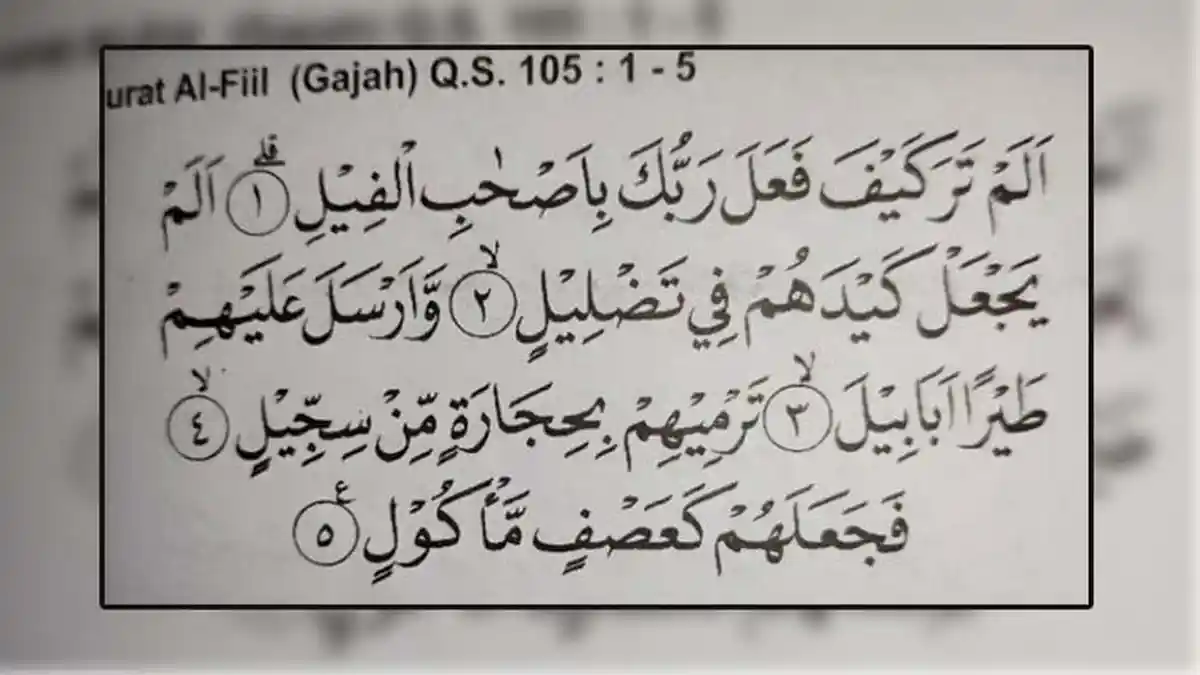 urat Al-Fiil (Gajah) Q.S. 105 : 1 - 5
اَلَمْ تَرَ كَيْفَ فَعَلَ رَبُّكَ بِاَصْحٰبِ الْفِيْلِۗ ١ اَلَمْ
يَجْعَلْ كَيْدَهُمْ فِيْ تَضْلِيْلٍۙ ٢ وَّاَرْسَلَ عَلَيْهِمْ
طَيْرًا اَبَابِيْلَۙ ٣ تَرْمِيْهِمْ بِحِجَارَةٍ مِّنْ سِجِّيْلٍۙ ٤
فَجَعَلَهُمْ كَعَصْفٍ مَّأْكُوْلٍ ࣖ ٥